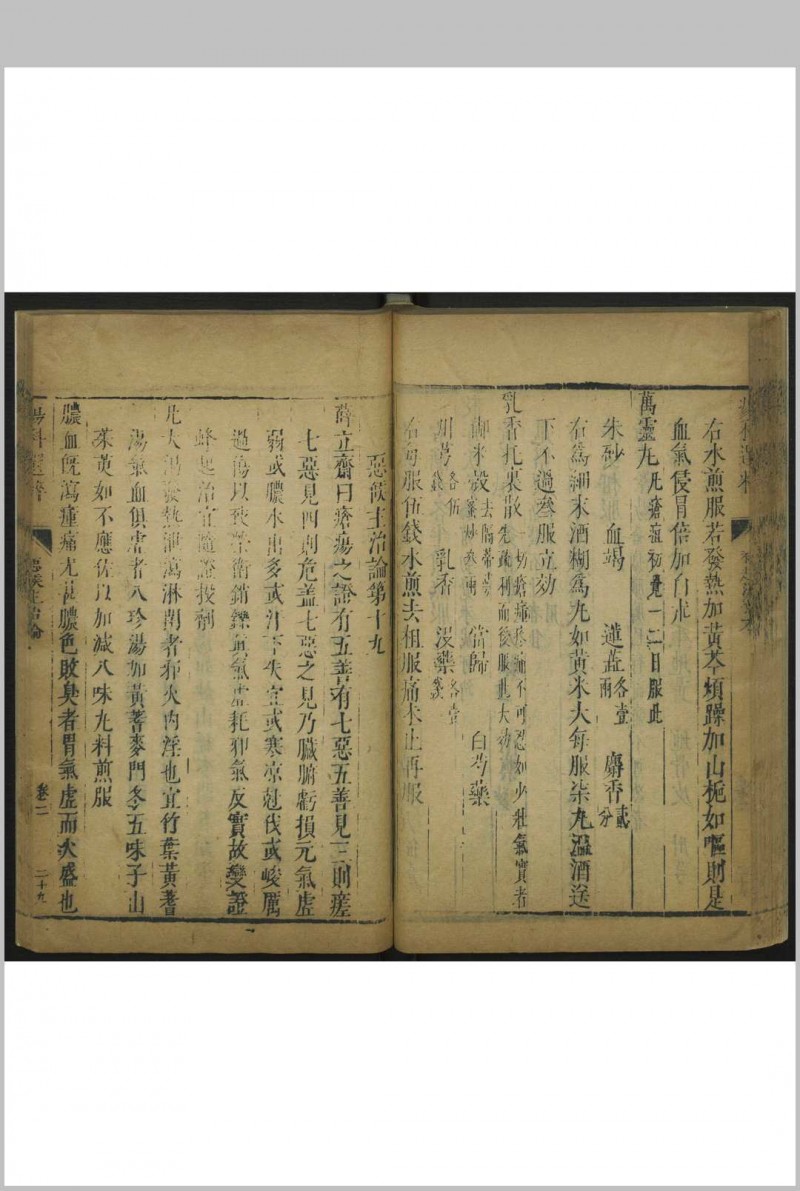 瘍科選粹
右水煎服若發熱加黃芩煩躁加山梔如嘔則是
血氣侵胃倍加白朮
萬靈丸 凡瘡疽初覺一二日服此
朱砂 血竭 各壹兩 麝香 貳分
右為細末酒糊為丸如黃米大每服柒丸溫酒送
下不過叁服立効
乳香托裏散 初瘡瘍疼痛不可忍如少壯氣實者
先疏利而後服此大効
御米殼 去膈蒂 蜜炒 當歸 白芍藥
川芎 各伍錢 乳香 沒藥 各壹錢
右每服伍錢水煎去柤服痛未止再服
惡候主治論第十九
薛立齋曰瘡瘍之證有五善有七惡五善見三則瘥
七惡見四則危蓋七惡之見乃臟腑虧損元氣虛
弱或膿水出多或汗下失宜或寒凉尅伐或峻厲
過傷以致榮衛銷鑠眞氣虛耗邪氣反實故變證
蜂起治宜隨證投劑
凡大渴發熱泄瀉淋閉者邪火內淫也宜竹葉黃蓍
湯氣血俱虛者八珍湯加黃蓍麥門冬五味子山
茱萸如不應佐以加減八味丸料煎服
膿血旣瀉腫痛尤甚膿色敗臭者胃氣虛而火盛也
瘍科選粹 惡候主治論 卷二 二十九